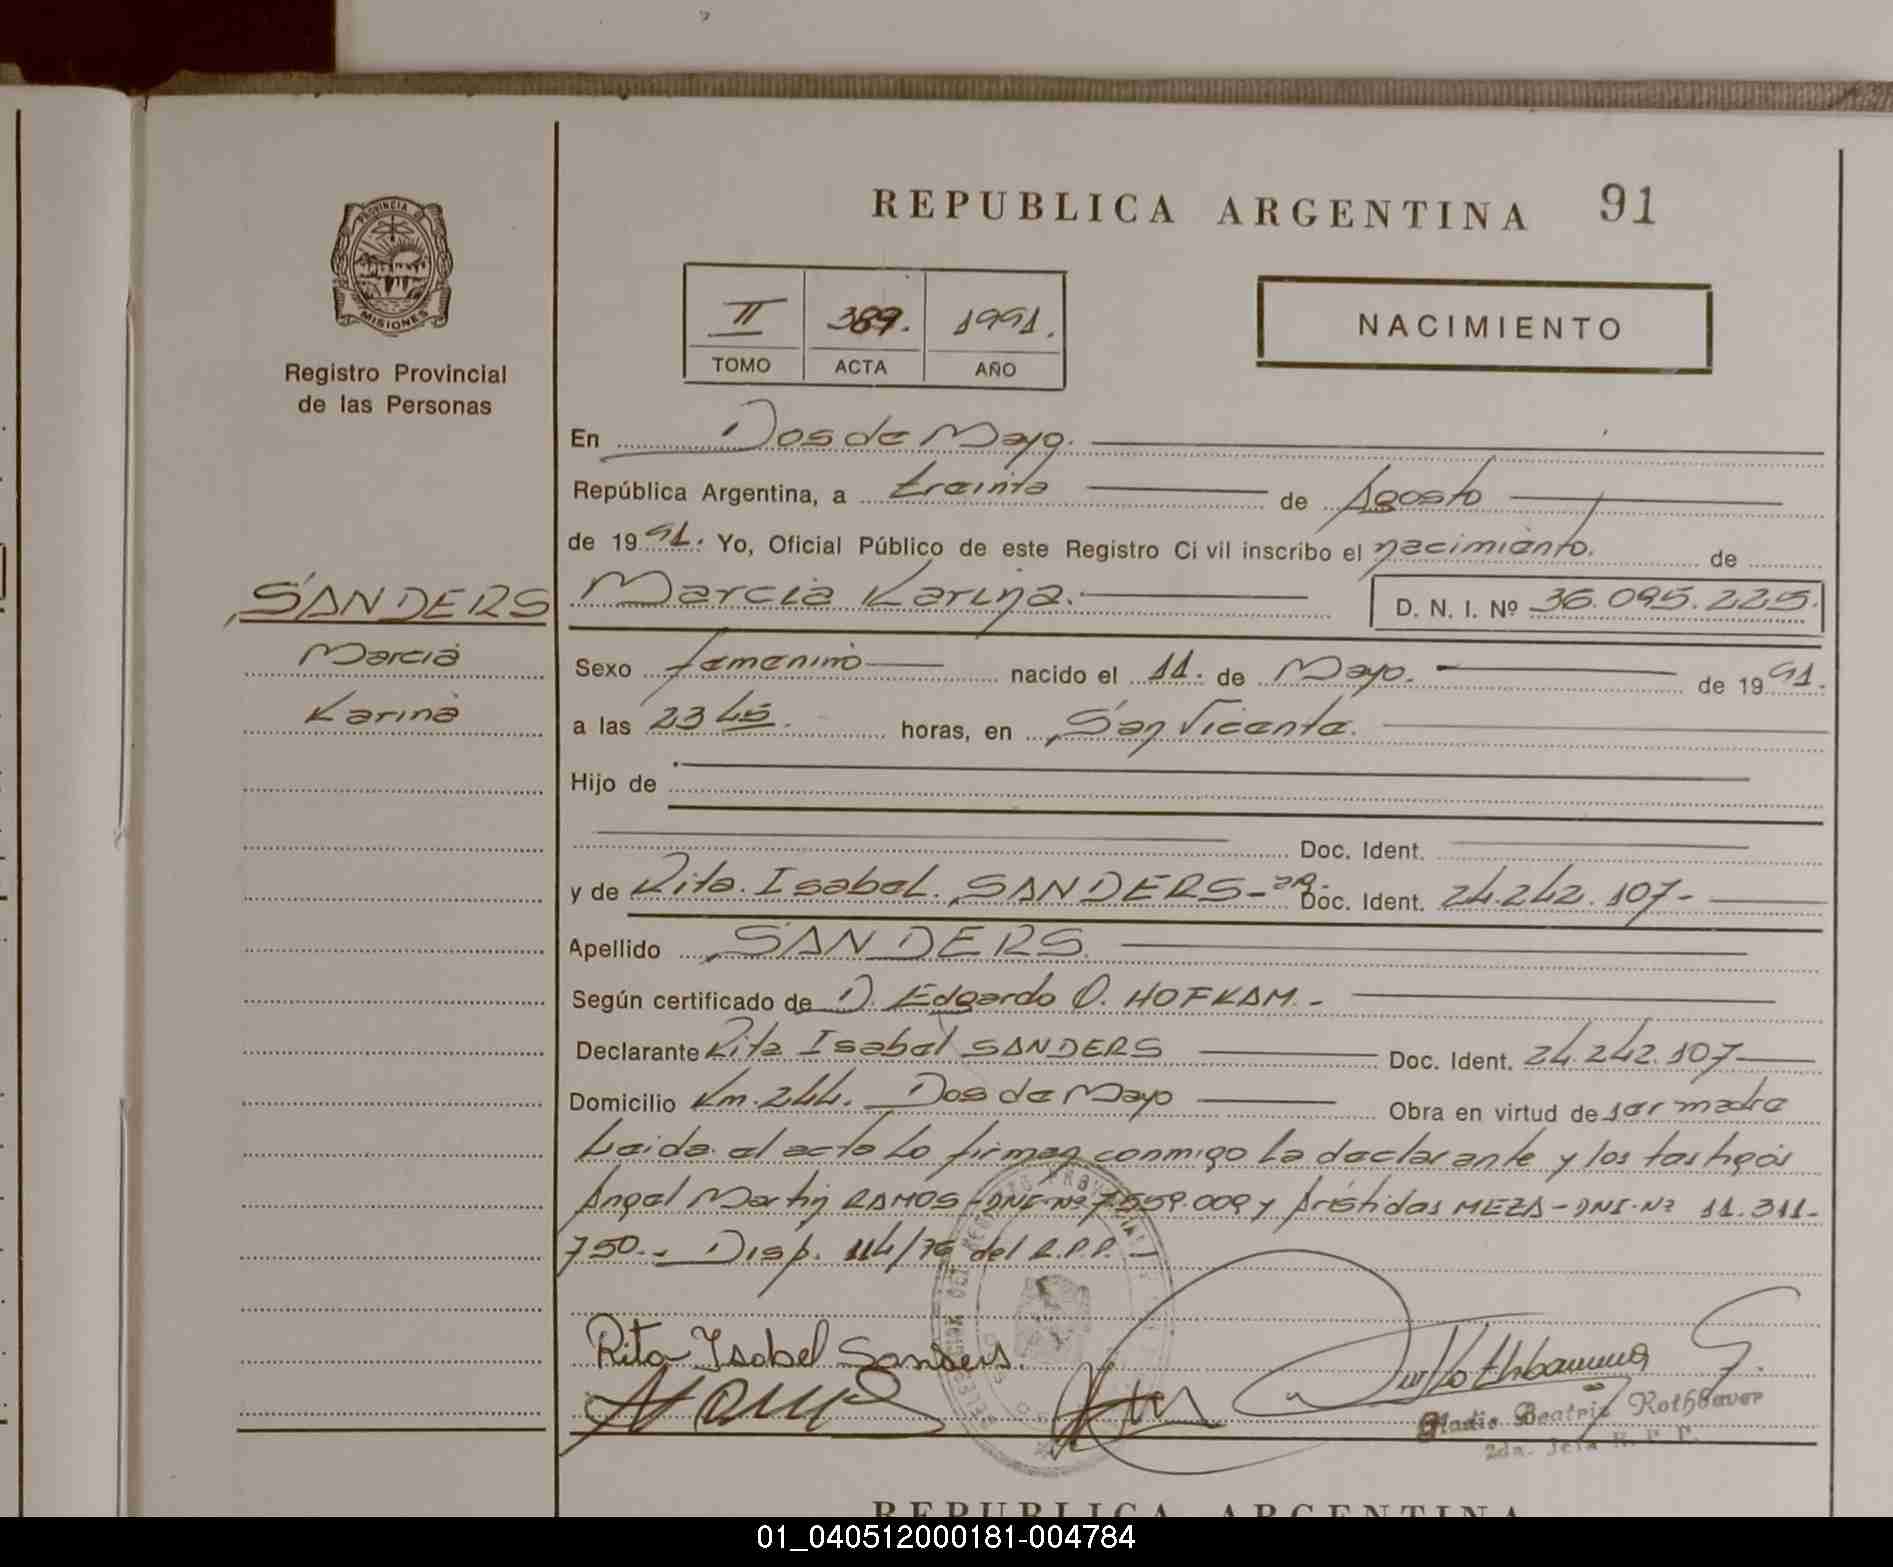 REPUBLICA ARGENTINA 91
PROVINCIA DE
MISIONES
Registro Provincial
de las Personas
II 389. 1991.
TOMO ACTA AÑO
NACIMIENTO
En Dos de Mayo.
República Argentina, a treinta de Agosto
de 1991. Yo, Oficial Público de este Registro Civil inscribo el nacimiento. de
SANDERS
Marcia
Karina
Marcia Karina. D. N. I. Nº 36.095.225.
Sexo femenino nacido el 11. de Mayo. de 1991.
a las 23 45. horas, en San Vicente.
Hijo de
Doc. Ident.
y de Rita. Isabel. SANDERS- Doc. Ident. 24.242.107-
Apellido SANDERS.
Según certificado de D. Edgardo O. HOFKAM.-
Declarante Rita Isabel SANDERS Doc. Ident. 24.242.107
Domicilio Km. 244. Dos de Mayo Obra en virtud de ser madre
Leida el acta Lo firman conmigo La declarante y los testigos
Angel Martin RAMOS-DNI-Nº 7.559.009 y Aristidas MEZA-DNI-Nº 11.311-
750.- Disp. 114/76 del R.P.P.-
Rita Isabel Sanders.
Gladis Beatriz Rothbauer
2da. Jefa R. P. P.
REPUBLICA ARGENTINA
01_040512000181-004784